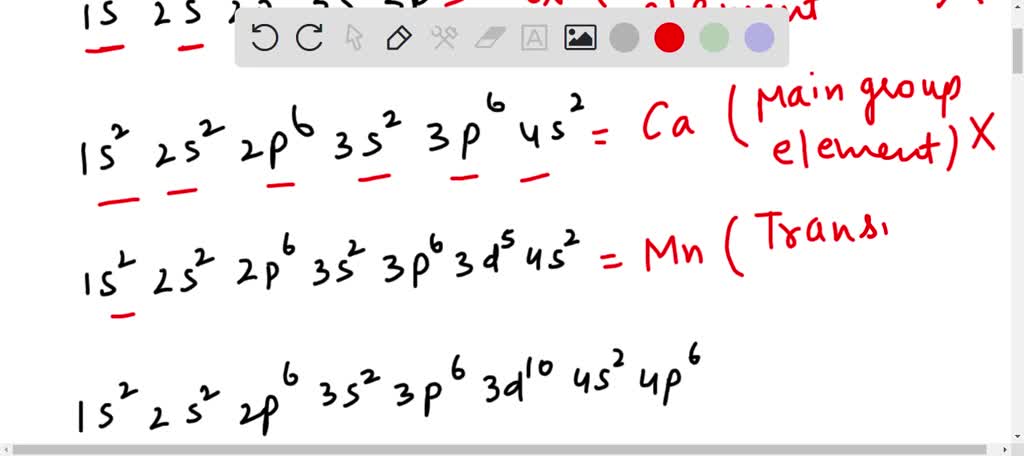 1s 2s
element
1s² 2s² 2p⁶ 3s² 3p⁶ 4s² = Ca (Main group
element) X
1s² 2s² 2p⁶ 3s² 3p⁶ 3d⁵ 4s² = Mn (Transi
1s² 2s² 2p⁶ 3s² 3p⁶ 3d¹⁰ 4s² 4p⁶